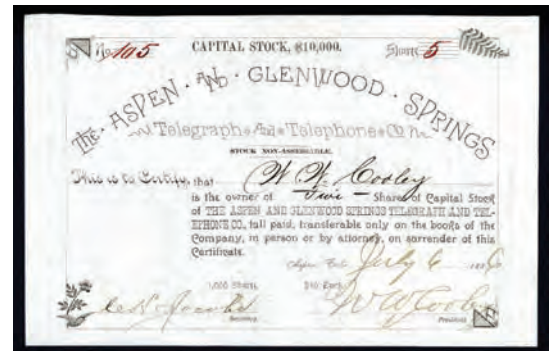 No. 105 CAPITAL STOCK, $10,000. Shares 5
THE ASPEN AND GLENWOOD SPRINGS
Telegraph And Telephone Co
STOCK NON-ASSESSABLE.
This is to Certify, that W. W. Cooley
is the owner of Five Shares of Capital Stock
of THE ASPEN AND GLENWOOD SPRINGS TELEGRAPH AND TEL-
EPHONE CO., full paid, transferable only on the books of the
Company, in person or by attorney, on surrender of this
Certificate.
Aspen Colo. July 6 188
1,000 Shares. $10 Each.
Jacobs W W Cooley
Secretary. President.